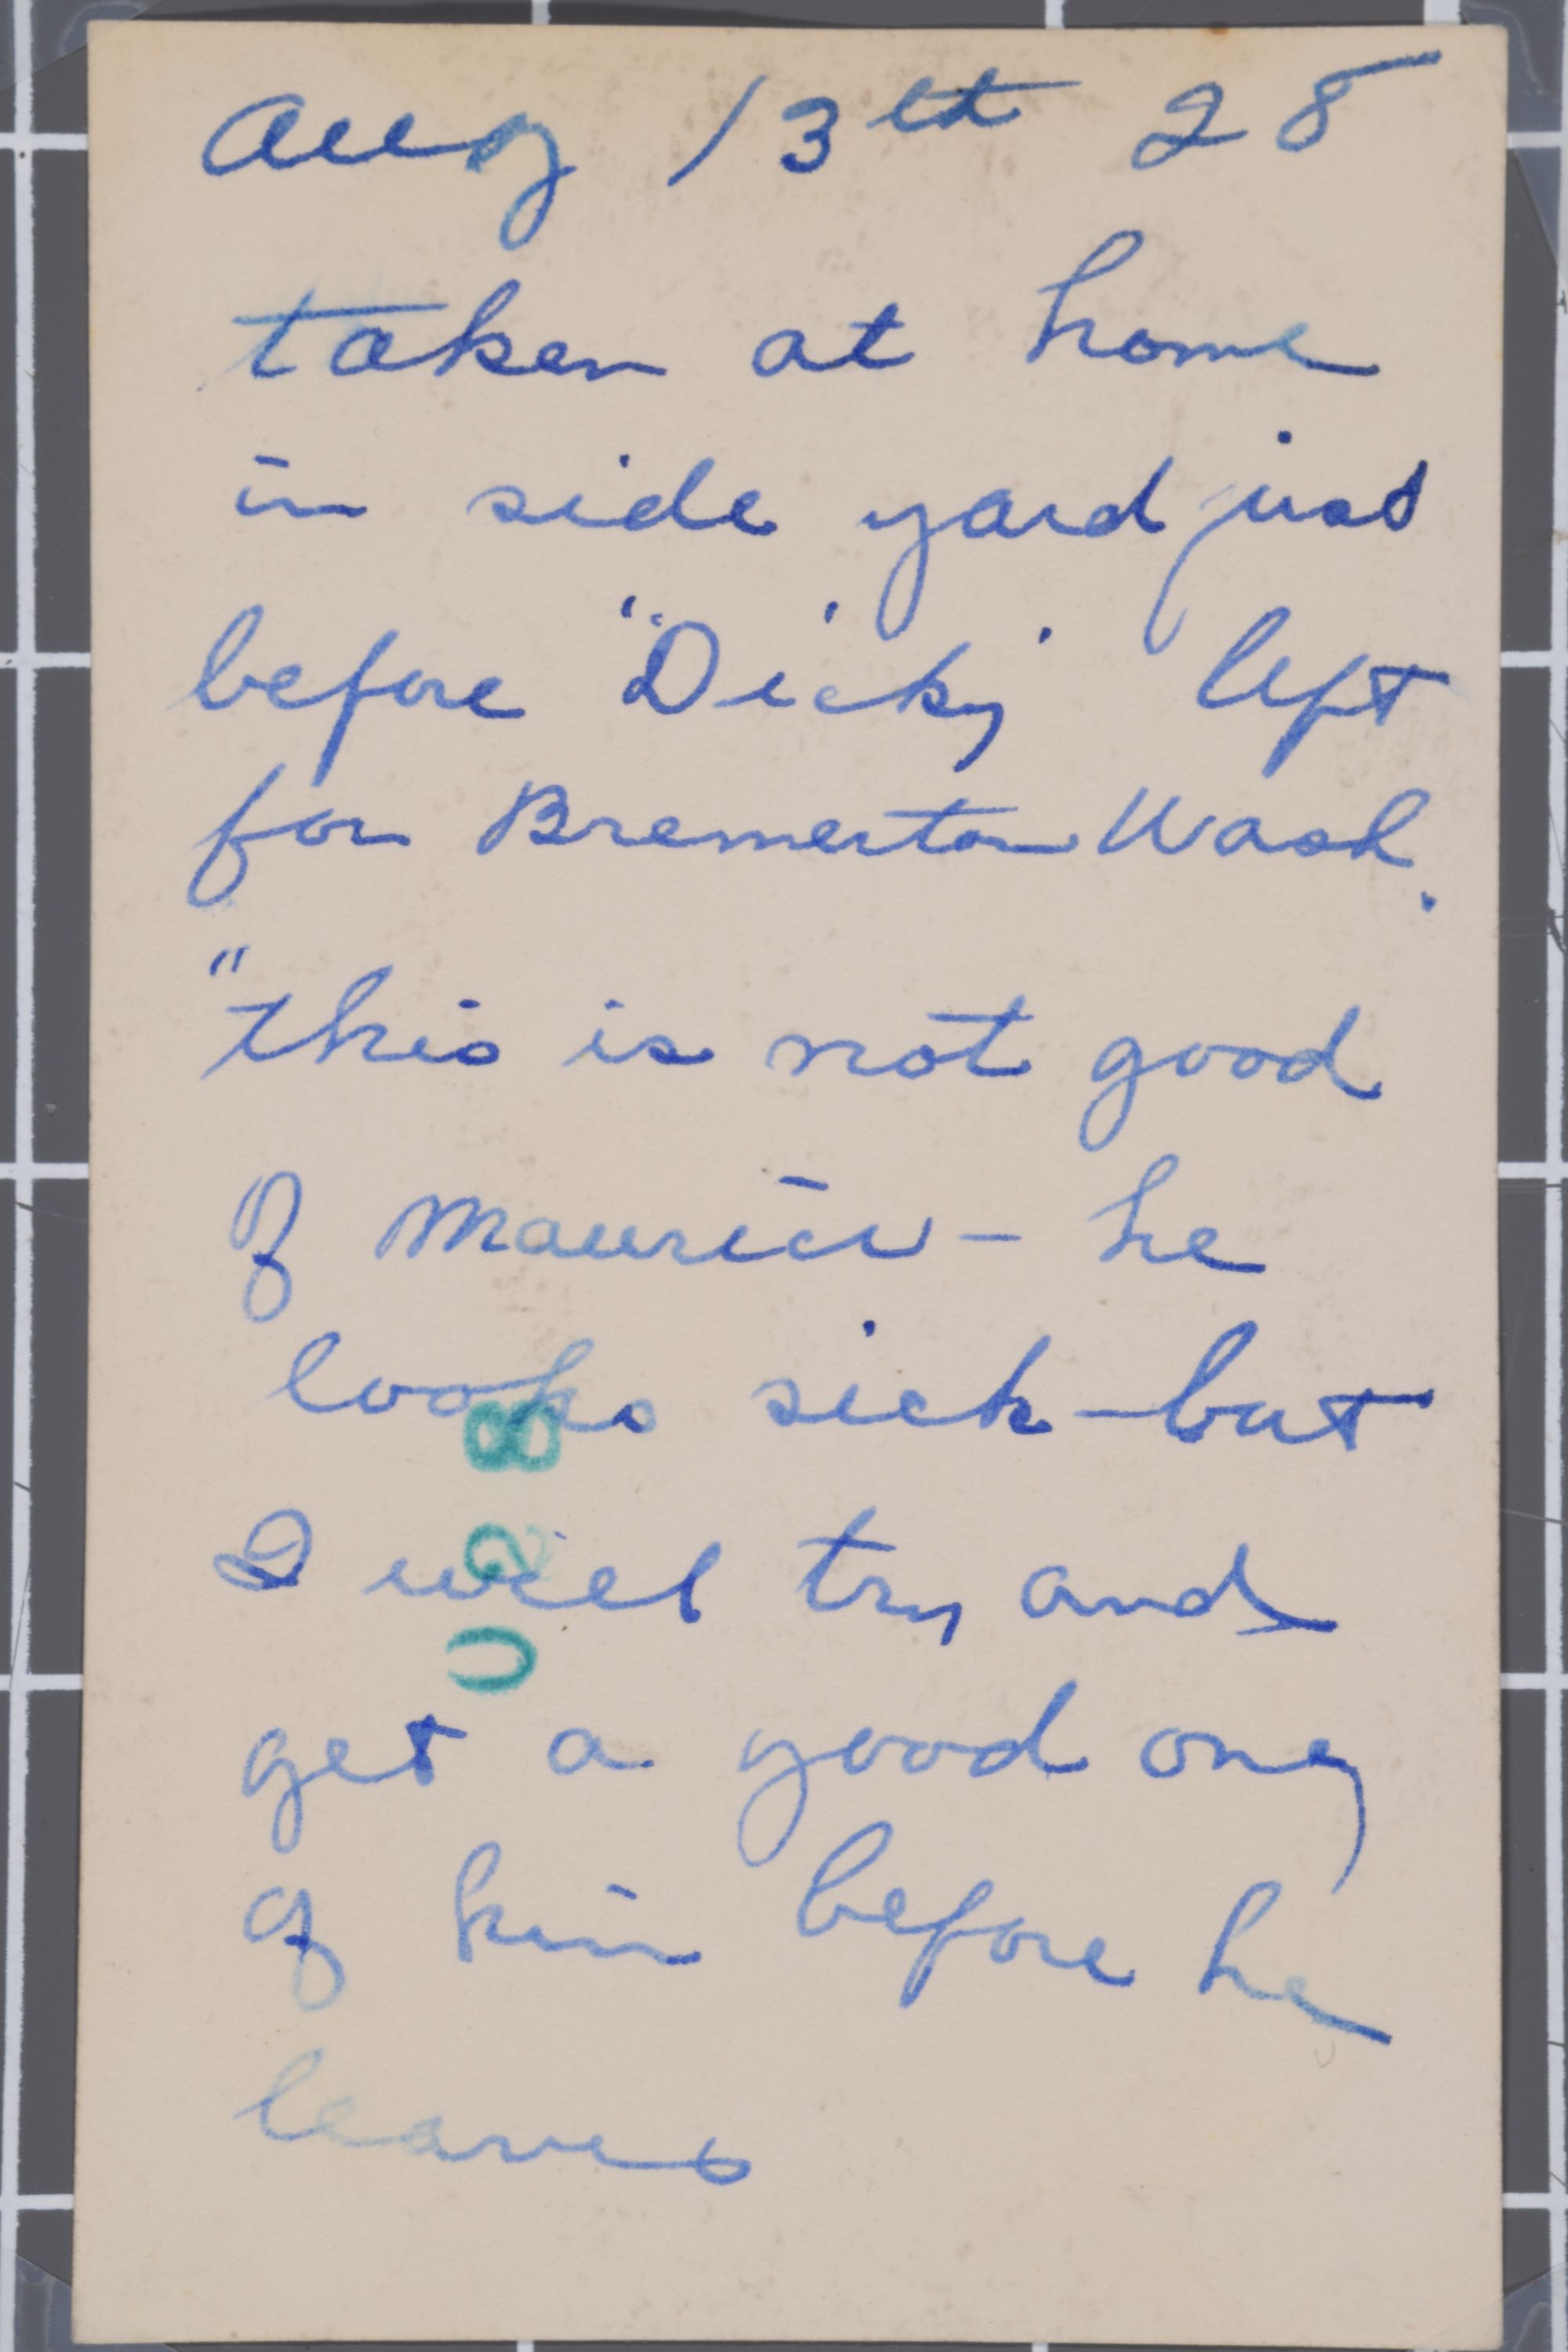 Aug 13th 28
taken at home
in side yard just
before "Dicky" left
for Bremerton Wash.
"this is not good
of Maurice – he
looks sick – but
I will try and
get a good one
of him before he
leaves